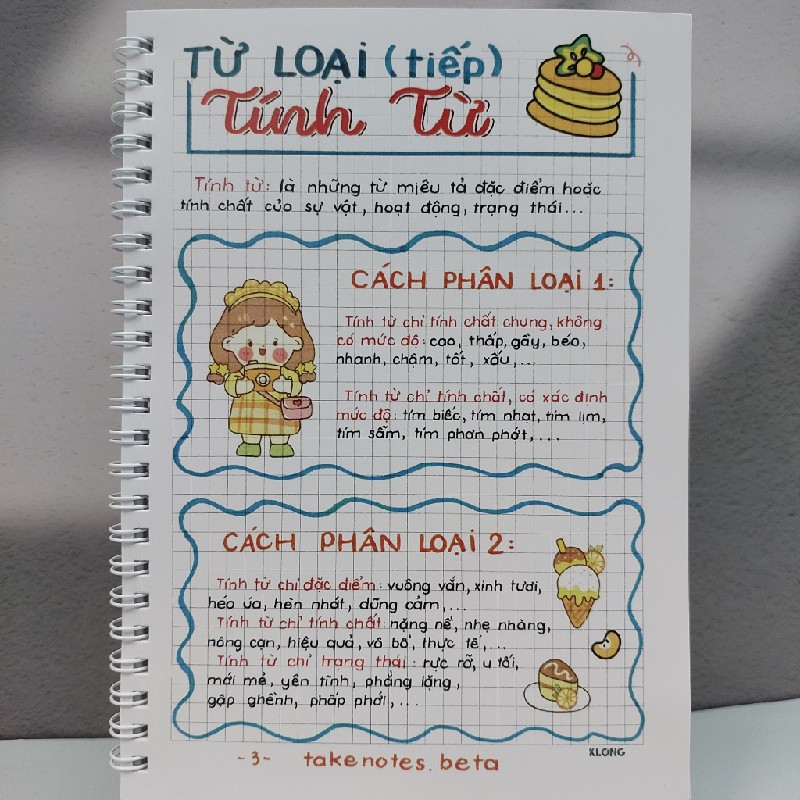 TỪ LOẠI (tiếp)
Tính Từ
Tính từ: là những từ miêu tả đặc điểm hoặc
tính chất của sự vật, hoạt động, trạng thái...
CÁCH PHÂN LOẠI 1:
Tính từ chỉ tính chất chung, không
có mức độ: cao, thấp, gầy, béo,
nhanh, chậm, tốt, xấu,...
Tính từ chỉ tính chất, có xác định
mức độ: tím biếc, tím nhạt, tím lịm,
tím sẫm, tím phơn phớt,...
CÁCH PHÂN LOẠI 2:
Tính từ chỉ đặc điểm: vuông vắn, xinh tươi,
héo úa, hèn nhát, dũng cảm,...
Tính từ chỉ tính chất: nặng nề, nhẹ nhàng,
nông cạn, hiệu quả, vô bổ, thực tế,...
Tính từ chỉ trạng thái: rực rỡ, u tối,
mới mẻ, yên tĩnh, phẳng lặng,
gập ghềnh, phấp phới,...
KLONG
-3- takenotes.beta